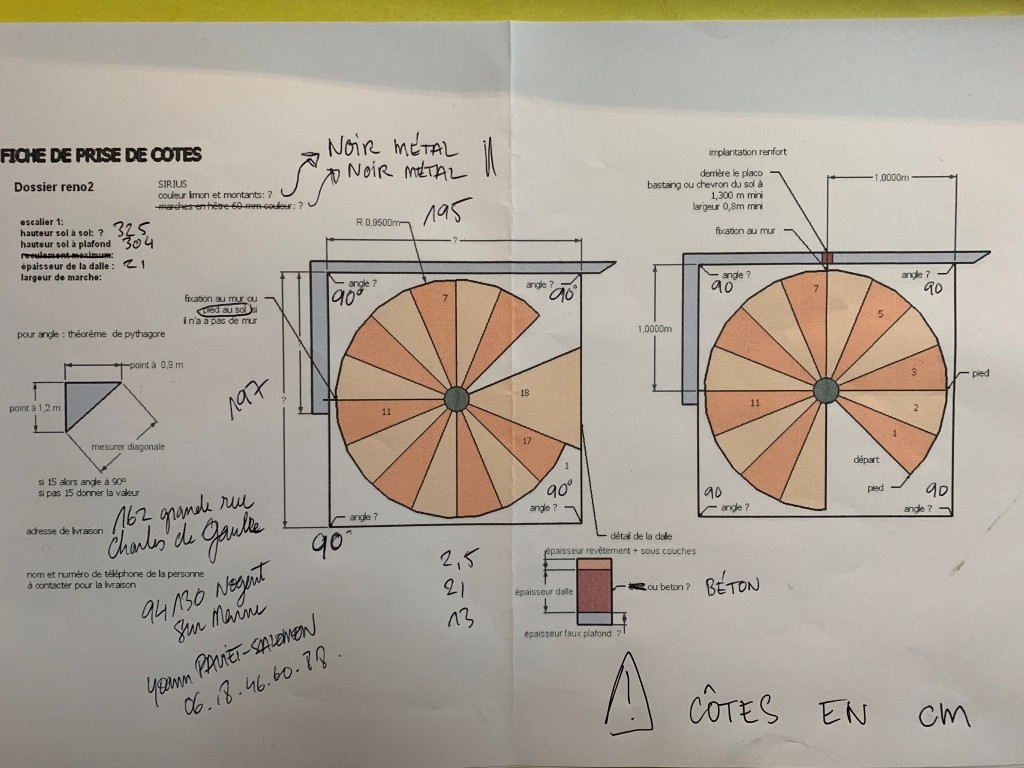 FICHE DE PRISE DE COTES
Dossier reno2
SIRIUS
couleur limon et montants: ?
marches en hêtre 60 mm couleur: ?
NOIR MÉTAL
NOIR MÉTAL
escalier 1:
hauteur sol à sol: ? 325
hauteur sol à plafond 304
reculement maximum:
épaisseur de la dalle : 21
largeur de marche:
R 0,9500m
195
?
fixation au mur ou
pied au sol si
il n'a a pas de mur
angle ?
90°
angle ?
90°
7
18
11
17
1
197
?
90°
angle ?
angle ?
90°
pour angle : théorème de pythagore
point à 0,9 m
point à 1,2 m
mesurer diagonale
si 15 alors angle à 90°
si pas 15 donner la valeur
adresse de livraison
162 grande rue
Charles de Gaulle
nom et numéro de téléphone de la personne
à contacter pour la livraison
94130 Nogent
sur Marne
Yoann PAVIET-SALOMON
06.18.46.60.88.
implantation renfort
derrière le placo
bastaing ou chevron du sol à
1,300 m mini
largeur 0,8m mini
fixation au mur
1,0000m
1,0000m
angle ?
90
angle ?
90
7
5
3
2
1
11
pied
départ
pied
90
angle ?
90
angle ?
détail de la dalle
épaisseur revêtement + sous couches
2,5
épaisseur dalle
21
ou beton ? BÉTON
épaisseur faux plafond ?
13
! CÔTES EN cm